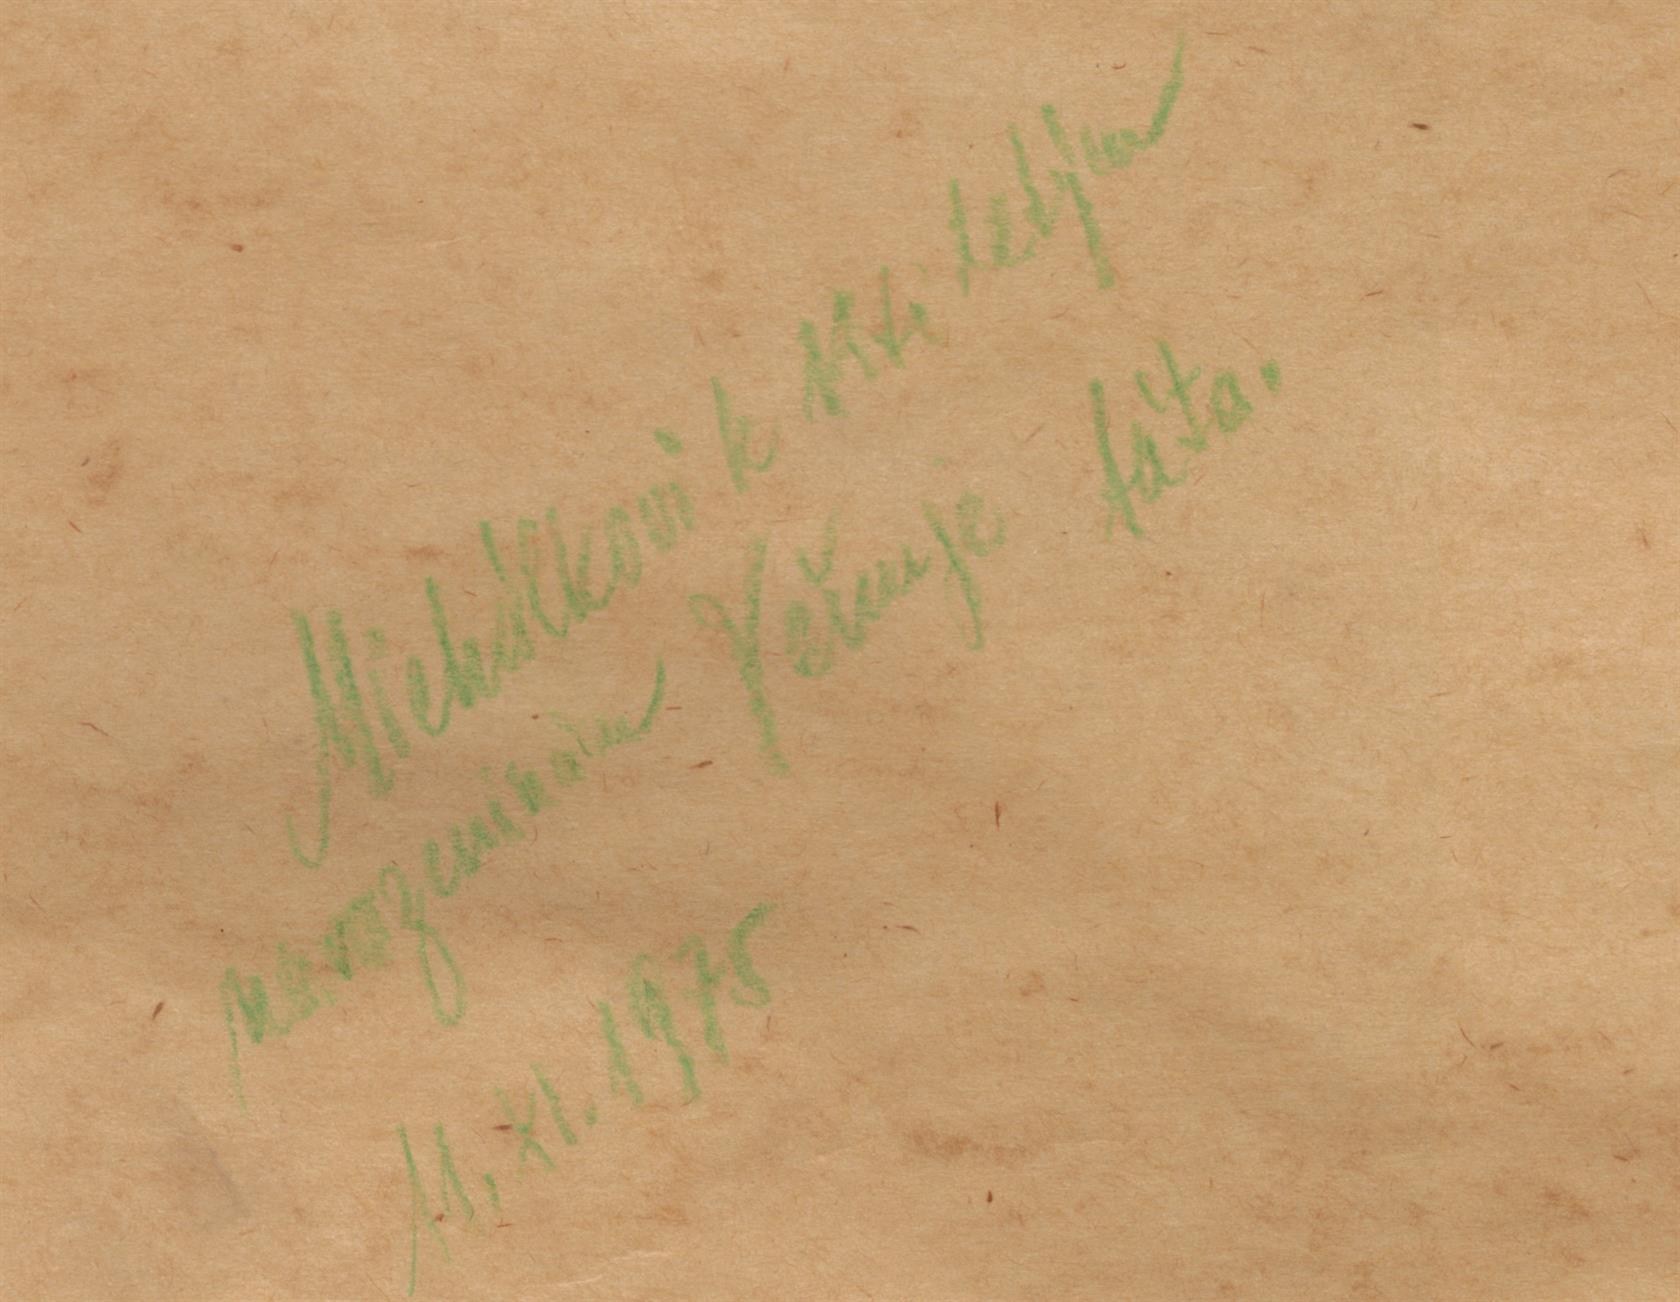 Michálkovi k pěti letým
narozeninám Věnuje táta.
11. XI. 1975